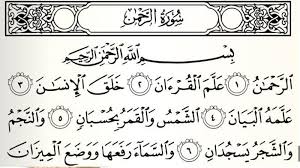 سُورَةُ الرَّحْمَٰن
بِسْمِ اللَّهِ الرَّحْمَٰنِ الرَّحِيمِ
الرَّحْمَٰنُ ١ عَلَّمَ الْقُرْءَانَ ٢ خَلَقَ الْإِنسَانَ ٣
عَلَّمَهُ الْبَيَانَ ٤ الشَّمْسُ وَالْقَمَرُ بِحُسْبَانٍ ٥ وَالنَّجْمُ
وَالشَّجَرُ يَسْجُدَانِ ٦ وَالسَّمَاءَ رَفَعَهَا وَوَضَعَ الْمِيزَانَ